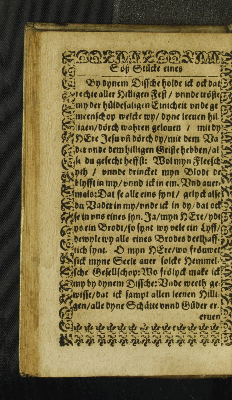 Söß Stücke eines
By dynem Dissche holde ick ock dat
rechte aller Hilligen Fest / vnnde tröste
my der hüldesaligen Einicheit vnde ge
meenschop welcke wy / dyne leeuen hil
ligen / dörch wahren gelouen / mit dy
HEre Jesu vnd dörch dy / mit dem Va
der vnde dem hilligen Geiste hebben / al
se du gesecht heffst: Wol myn Fleesch
yth / vnnde drincket myn Blodt de
blyfft in my / vnnd ick in em. Vnd auer
mals: Dat se alle eins synt / gelyck alse
du Vader in my / vnde ick in dy / dat ock
se in vns eines syn. Ja / myn HEre / yde
ys ein Brodt / so synt wy vele ein Lyff /
dewyle wy alle eines Brodes deelhaff-
tich synt. O myn HEre / wo fröuwet
sick myne Seele auer solcke Hemmel-
sche Gesellschop: Wo frölyck make ick
my by dynem Dissche: Vnde werth ge-
wisse / dat ick sampt allen leenen Hilli-
gen / alle dyne Schätte vnnd Güder er-
eruen